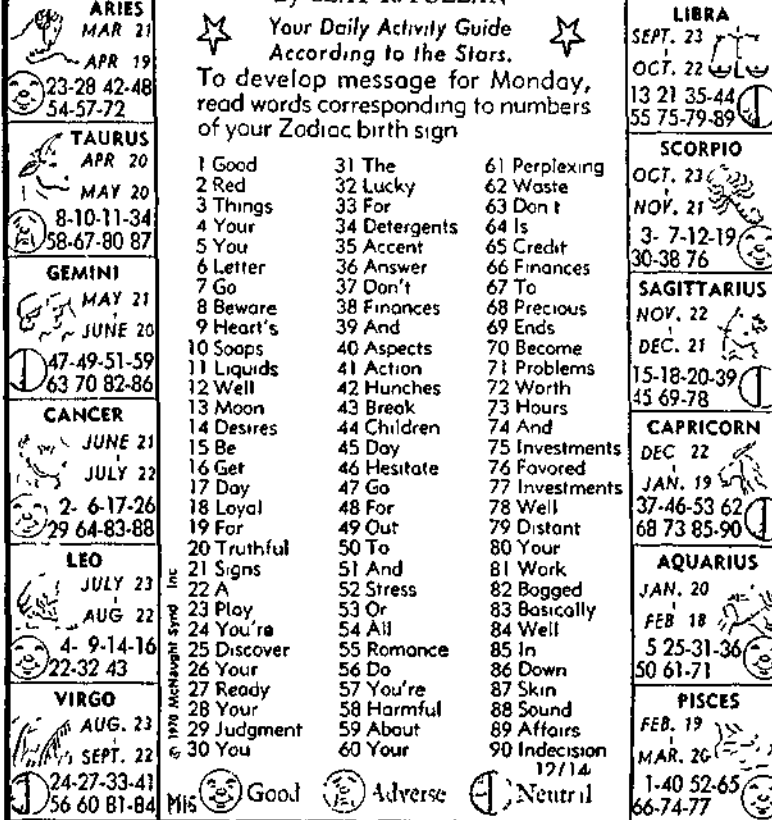 ARIES
MAR 21
APR 19
23-28 42-48
54-57-72
TAURUS
APR 20
MAY 20
8-10-11-34
58-67-80 87
GEMINI
MAY 21
JUNE 20
47-49-51-59
63 70 82-86
CANCER
JUNE 21
JULY 22
2- 6-17-26
29 64-83-88
LEO
JULY 23
AUG 22
4- 9-14-16
22-32 43
VIRGO
AUG. 23
SEPT. 22
24-27-33-41
56 60 81-84
Your Daily Activity Guide
According to the Stars.
To develop message for Monday,
read words corresponding to numbers
of your Zodiac birth sign
1 Good
2 Red
3 Things
4 Your
5 You
6 Letter
7 Go
8 Beware
9 Heart's
10 Soaps
11 Liquids
12 Well
13 Moon
14 Desires
15 Be
16 Get
17 Day
18 Loyal
19 For
20 Truthful
21 Signs
22 A
23 Play
24 You're
25 Discover
26 Your
27 Ready
28 Your
29 Judgment
30 You
31 The
32 Lucky
33 For
34 Detergents
35 Accent
36 Answer
37 Don't
38 Finances
39 And
40 Aspects
41 Action
42 Hunches
43 Break
44 Children
45 Day
46 Hesitate
47 Go
48 For
49 Out
50 To
51 And
52 Stress
53 Or
54 All
55 Romance
56 Do
57 You're
58 Harmful
59 About
60 Your
61 Perplexing
62 Waste
63 Don t
64 Is
65 Credit
66 Finances
67 To
68 Precious
69 Ends
70 Become
71 Problems
72 Worth
73 Hours
74 And
75 Investments
76 Favored
77 Investments
78 Well
79 Distant
80 Your
81 Work
82 Bogged
83 Basically
84 Well
85 In
86 Down
87 Skin
88 Sound
89 Affairs
90 Indecision
12/14
© 1970 McNaught Synd Inc
Good Adverse Neutral
LIBRA
SEPT. 23
OCT. 22
13 21 35-44
55 75-79-89
SCORPIO
OCT. 23
NOV. 21
3- 7-12-19
30-38 76
SAGITTARIUS
NOV. 22
DEC. 21
15-18-20-39
45 69-78
CAPRICORN
DEC 22
JAN. 19
37-46-53 62
68 73 85-90
AQUARIUS
JAN. 20
FEB 18
5 25-31-36
50 61-71
PISCES
FEB. 19
MAR. 20
1-40 52-65
66-74-77